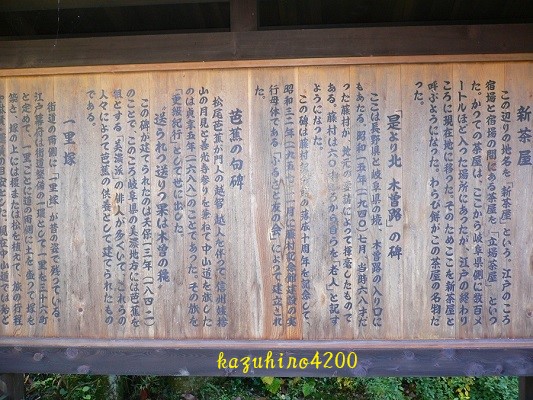 新茶屋
この辺りの地名を「新茶屋」という。江戸のころ
宿場と宿場の間にある茶屋を「立場茶屋」といっ
た。かつての茶屋は、ここから岐阜県側に数百メ
ートルほど入った場所にあったが、江戸の終わり
ころに現在地に移った。そのためここを新茶屋と
呼ぶようになった。わらび餅がこの茶屋の名物だ
った。
「是より北 木曽路」の碑
ここは長野県と岐阜県の境、木曽路の入り口に
もあたる。昭和一五年(一九四〇)七月、当時六八才だ
った藤村が、地元の要請によって揮毫したもので
ある。藤村は六〇才ころから自らを「老人」と記す
ようになった。
この碑は藤村記念館の落成十周年を記念して、
昭和三二年(一九五七)一一月に藤村記念館建設の実
行母体である「ふるさと友の会」によって建立され
た。
芭蕉の句碑
松尾芭蕉が門人の越智越人を伴って、信州姨捨
山の月見と善光寺参りを兼ねて中山道を旅した
のは貞享五年(一六八八)のことであった。その旅を
「更級紀行」として世に出した。
“送られつ送りつ果は木曽の穐”
この碑が建てられたのは天保一三年(一八四二)
のことで、このころ岐阜県の美濃地方には芭蕉を
祖とする「美濃派」の俳人が多くいて、これらの
人々によって芭蕉の供養として建てられたもの
である。
一里塚
街道の両側に「一里塚」が昔の姿で残っている。
江戸幕府は街道整備の一環として一里を三十六町
と定めて、一里ごとに道の両側に土を盛って塚を
築き、塚の上には榎または松を植えて、旅の行程